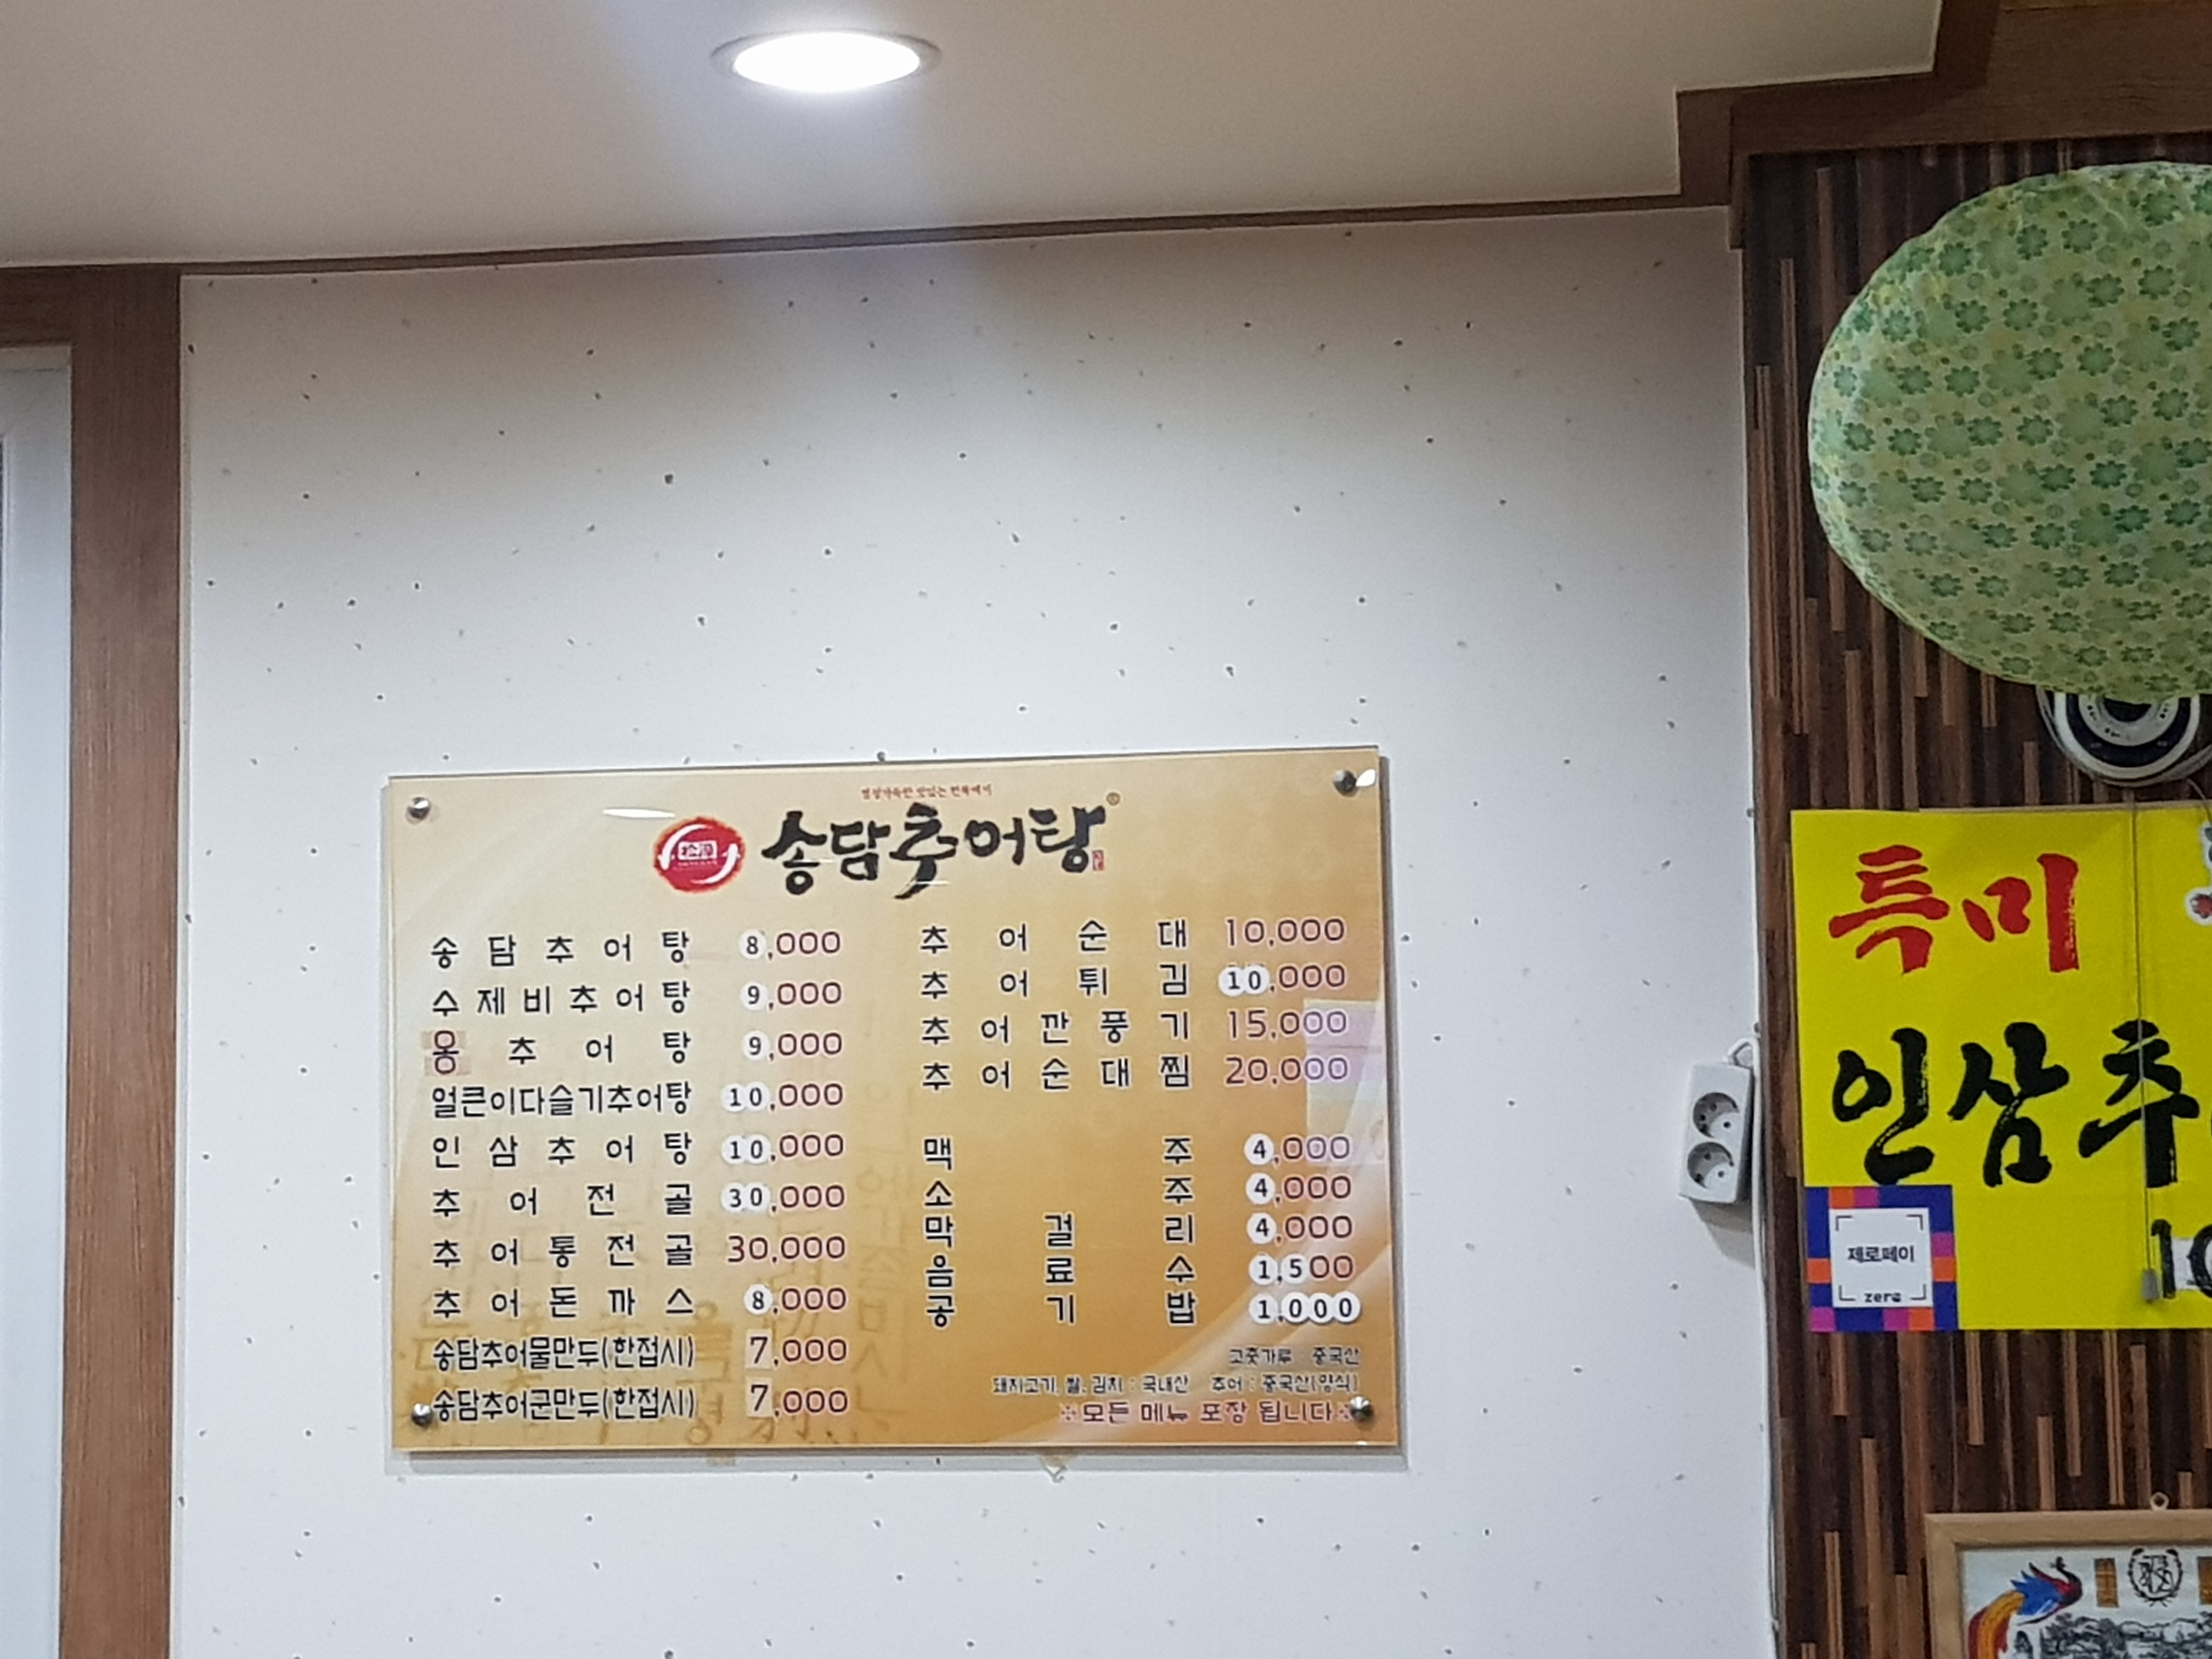 송담추어탕
송담추어탕 8,000
수제비추어탕 9,000
옹추어탕 9,000
얼큰이다슬기추어탕 10,000
인삼추어탕 10,000
추어전골 30,000
추어통전골 30,000
추어돈까스 8,000
송담추어물만두(한접시) 7,000
송담추어군만두(한접시) 7,000
추어순대 10,000
추어튀김 10,000
추어깐풍기 15,000
추어순대찜 20,000
맥주 4,000
소주 4,000
막걸리 4,000
음료수 1,500
공기밥 1,000
고춧가루 중국산
돼지고기, 쌀, 김치 : 국내산 추어 : 중국산(양식)
※모든 메뉴 포장 됩니다※
특미
인삼추
제로페이
zero